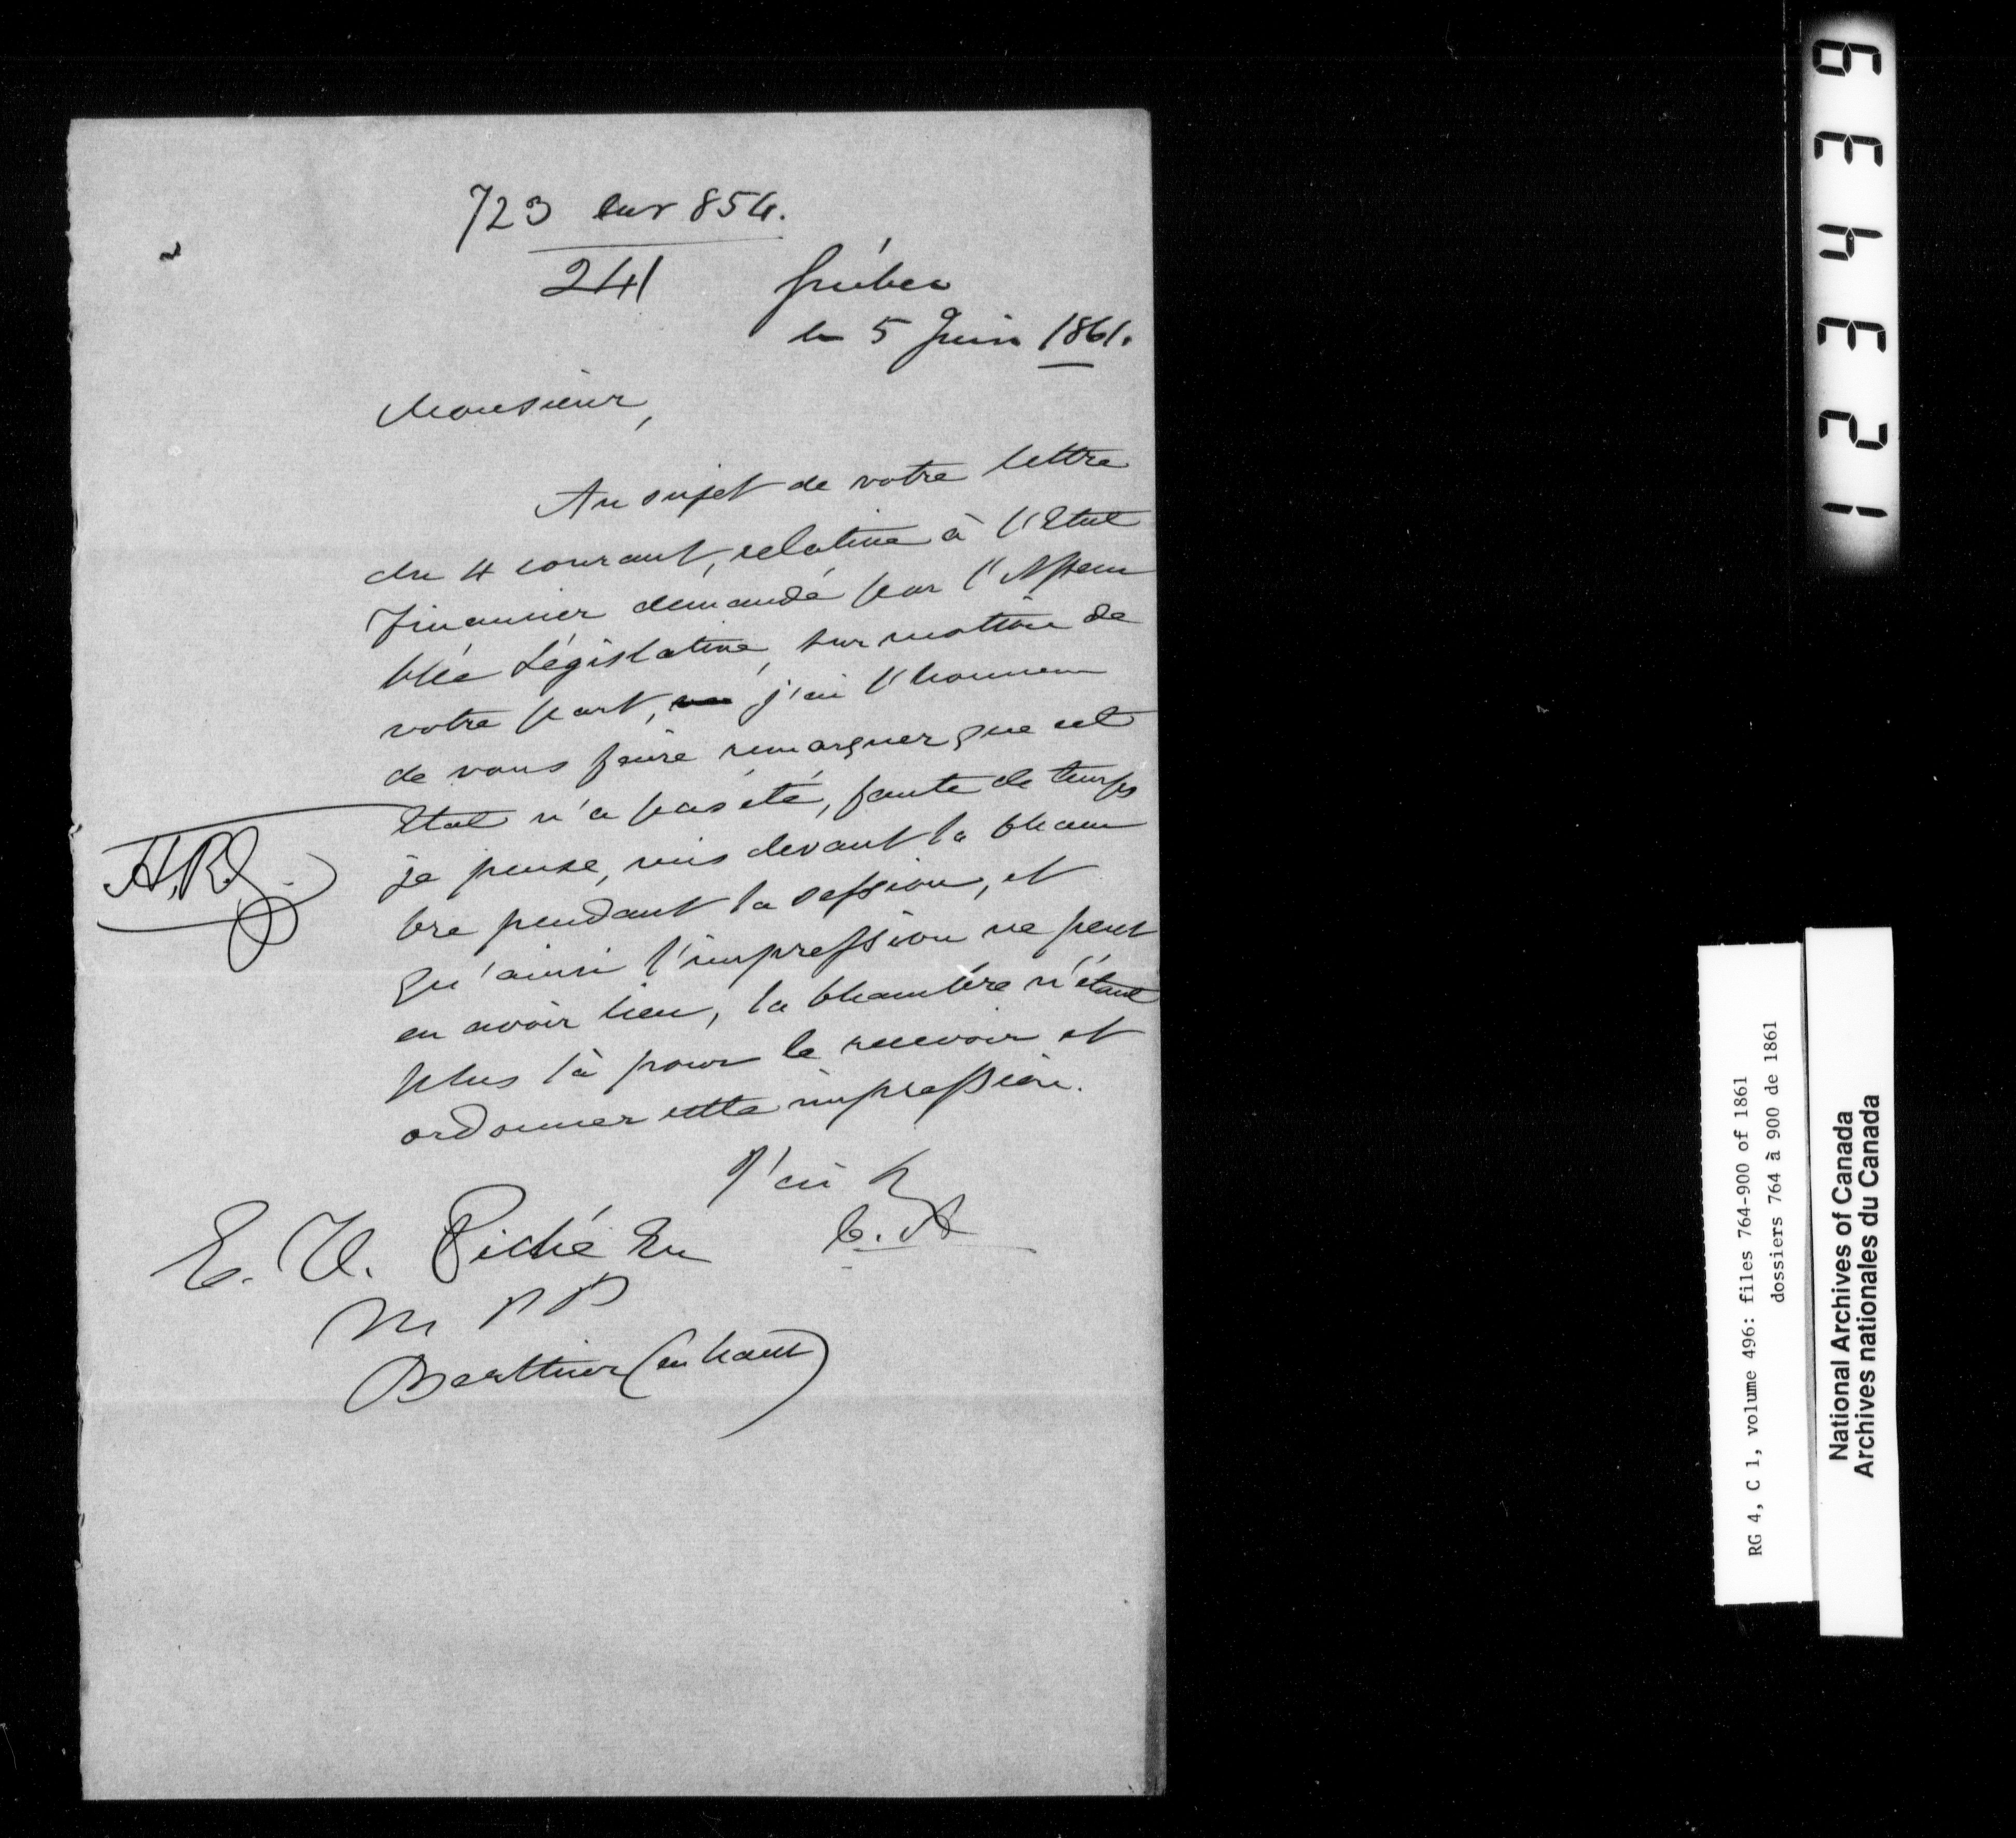 723 sur 854.
241
Québec
le 5 Juin 1861.
Monsieur,
Au sujet de votre lettre
du 4 courant, relative à l'Etat
financier demandé par l'Assem
blée Législative, sur motion de
votre part, j'ai l'honneur
de vous faire remarquer que cet
Etat n'a pas été, faute de temps
je pense, mis devant la Cham
bre pendant la session, et
qu'ainsi l'impression ne peut
en avoir lieu, la Chambre n'étant
plus là pour le recevoir et
ordonner cette impression.
J'ai h
C. A
E. U. Piché Eu
M P P
Berthier (en haut)
123436
RG 4, C 1, volume 496: files 764-900 of 1861
dossiers 764 à 900 de 1861
National Archives of Canada
Archives nationales du Canada